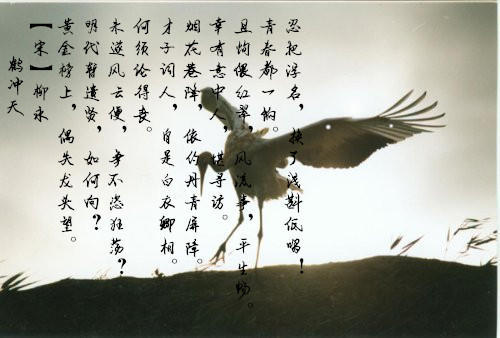 鹤冲天
【宋】柳永
黄金榜上，偶失龙头望。
明代暂遗贤，如何向？
未遂风云便，争不恣狂荡？
何须论得丧。
才子词人，自是白衣卿相。
烟花巷陌，依约丹青屏障。
幸有意中人，堪寻访。
且恁偎红翠，风流事，平生畅。
青春都一饷。
忍把浮名，换了浅斟低唱！